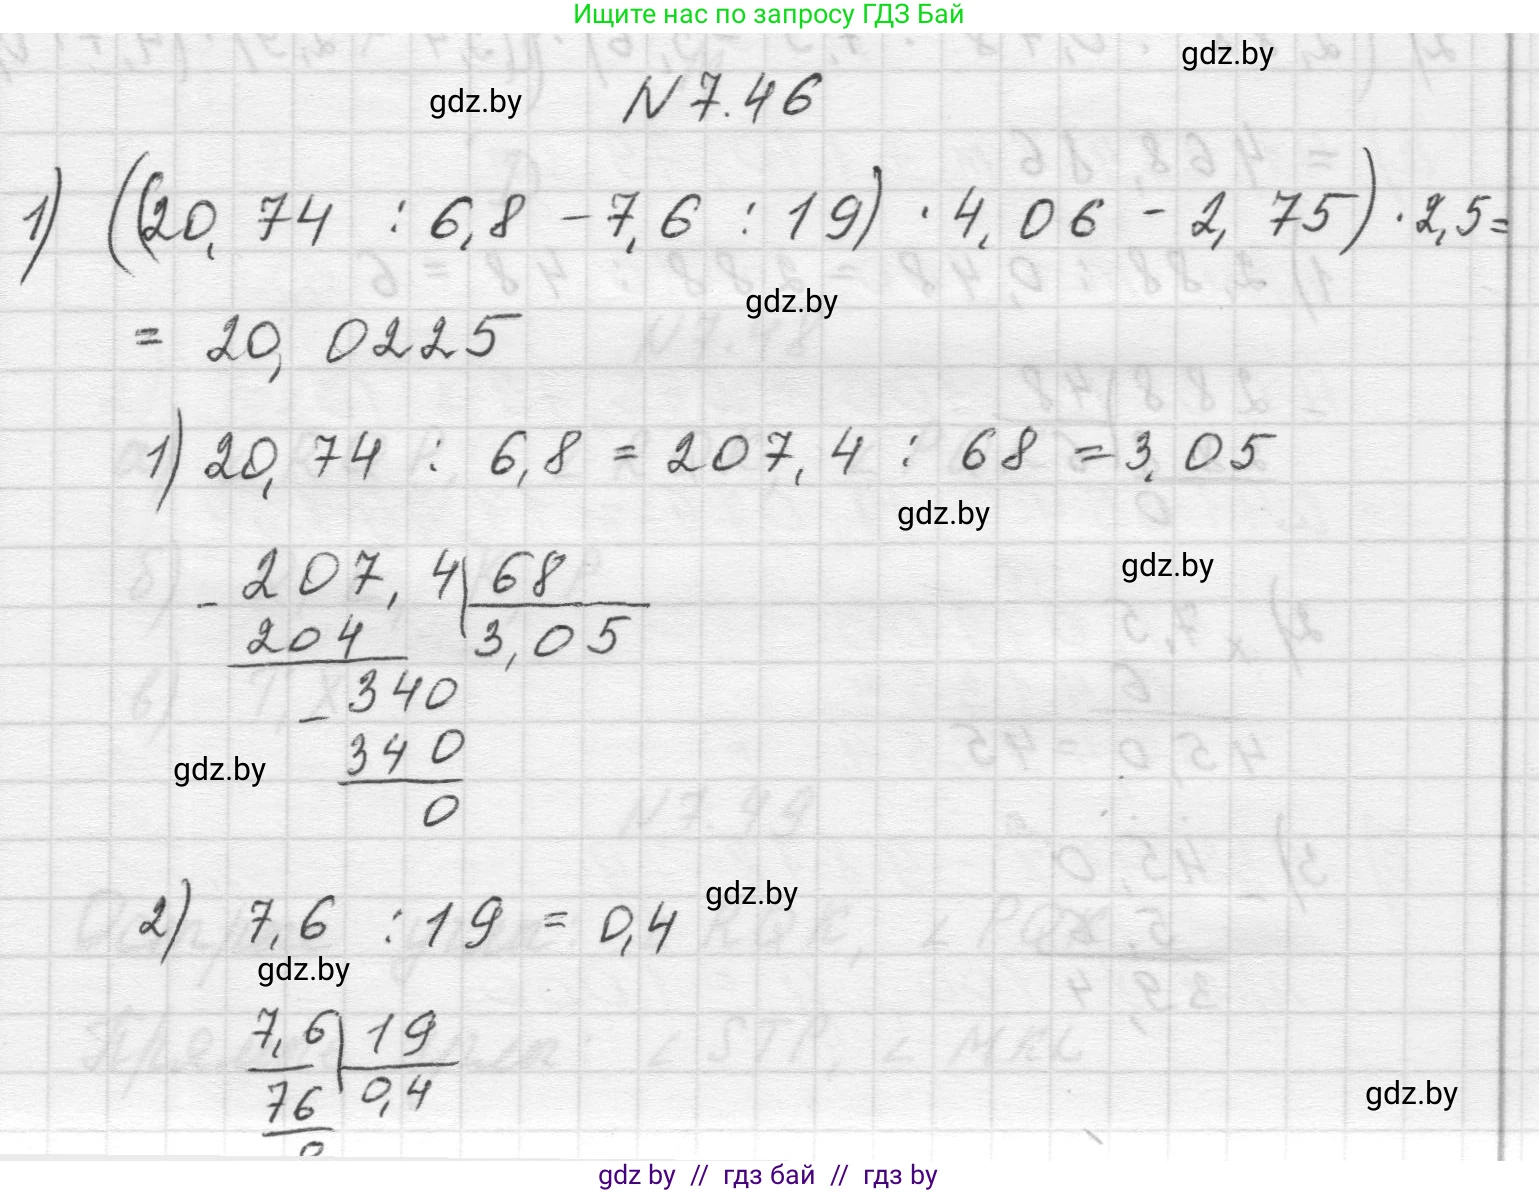 Ищите нас по запросу ГДЗ Бай
gdz.by
gdz.by
N 7.46
1) ((20,74 : 6,8 - 7,6 : 19) · 4,06 - 2,75) · 2,5 =
gdz.by
= 20,0225
1) 20,74 : 6,8 = 207,4 : 68 = 3,05
gdz.by
gdz.by
- 207,4 | 68
204 3,05
- 340
340
gdz.by
0
gdz.by
2) 7,6 : 19 = 0,4
gdz.by
7,6 | 19
76 0,4
0
gdz.by
gdz by // гдз бай // гдз by